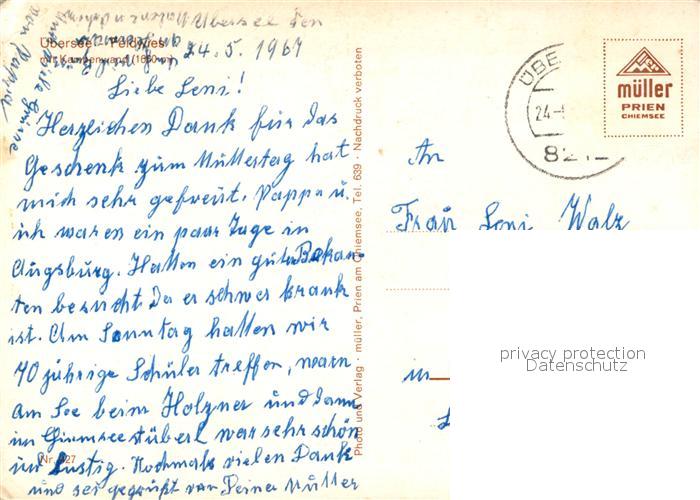 Übersee den
24.5.1967
Übersee - Feldwies
mit Kampenwand (1680 m)
Liebe Leni!
Herzlichen Dank für das
Geschenk zum Muttertag hat
mich sehr gefreut. Pappa u.
ich waren ein paar Tage in
Augsburg. Hatten ein gute Bekan-
ten besucht. Da er schwer krank
ist. Am Sonntag hatten wir
40 jährige Schüler treffen, warn
am See beim Holzner und dann
im Chiemseestüberl war sehr schön
und Lustig. Nochmals vielen Dank
und sei gegrüßt von Deiner Mutter
viele Grüße
von Pappa
Nr. 327
Photo und Verlag · müller, Prien am Chiemsee, Tel. 639 · Nachdruck verboten
ÜBE
24.-
82
müller
PRIEN
CHIEMSEE
An
Frau Leni Walz
in
privacy protection
Datenschutz